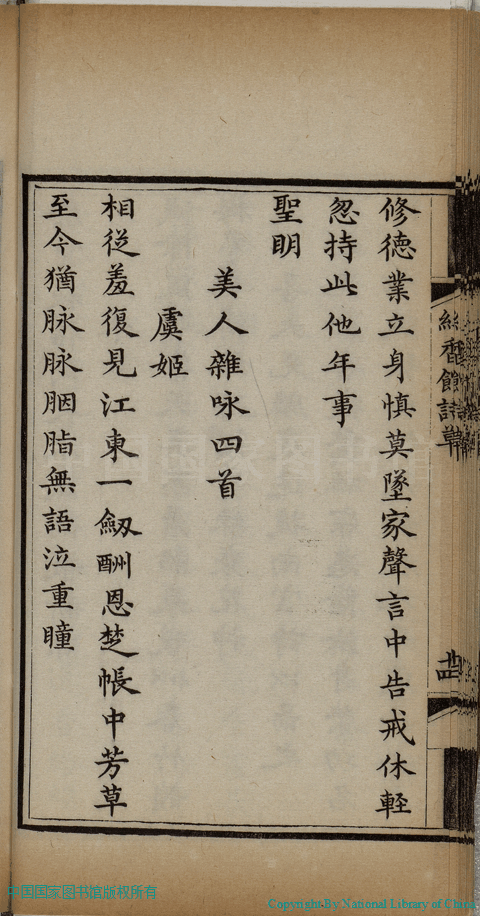 修德業立身慎莫墜家聲言中告戒休輕
忽持此他年事
聖明
美人雜咏四首
虞姬
相從羞復見江東一劔酬恩楚帳中芳草
至今猶脉脉胭脂無語泣重瞳
香館詩草
中国国家图书馆
中国国家图书馆版权所有
Copyright By National Library of China